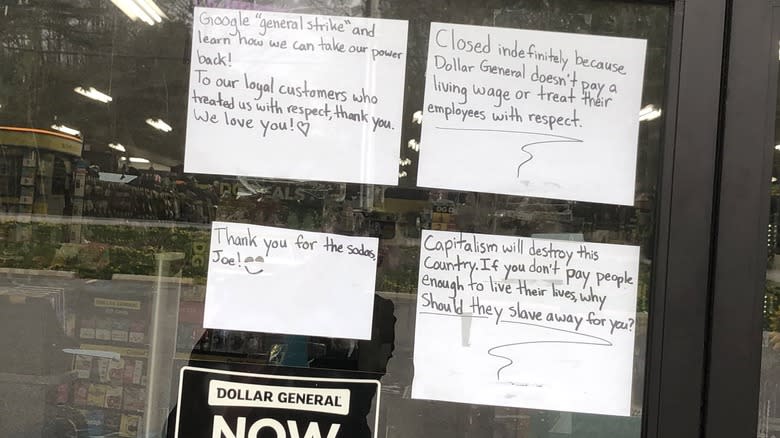 Google "general strike" and
learn how we can take our power
back!
To our loyal customers who
treated us with respect, thank you.
We love you!♡
Closed indefinitely because
Dollar General doesn't pay a
living wage or treat their
employees with respect.
Thank you for the sodas,
Joe!
Capitalism will destroy this
Country. If you don't pay people
enough to live their lives, why
Should they slave away for you?
DOLLAR GENERAL
NOW
DOLLAR GENERAL